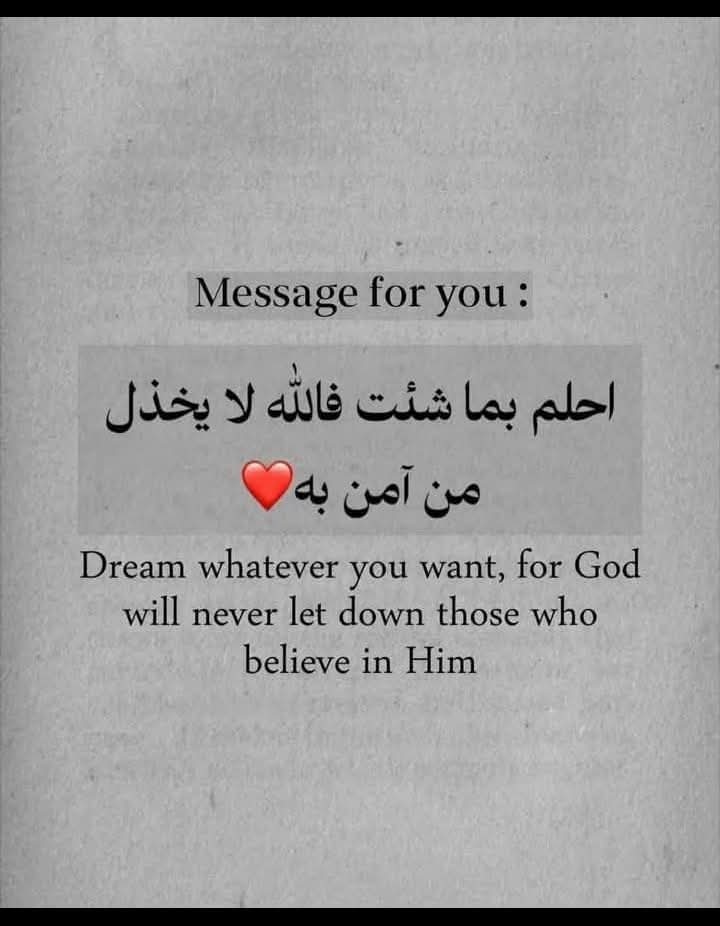 Message for you :
احلم بما شئت فالله لا يخذل
من آمن به❤️
Dream whatever you want, for God
will never let down those who
believe in Him